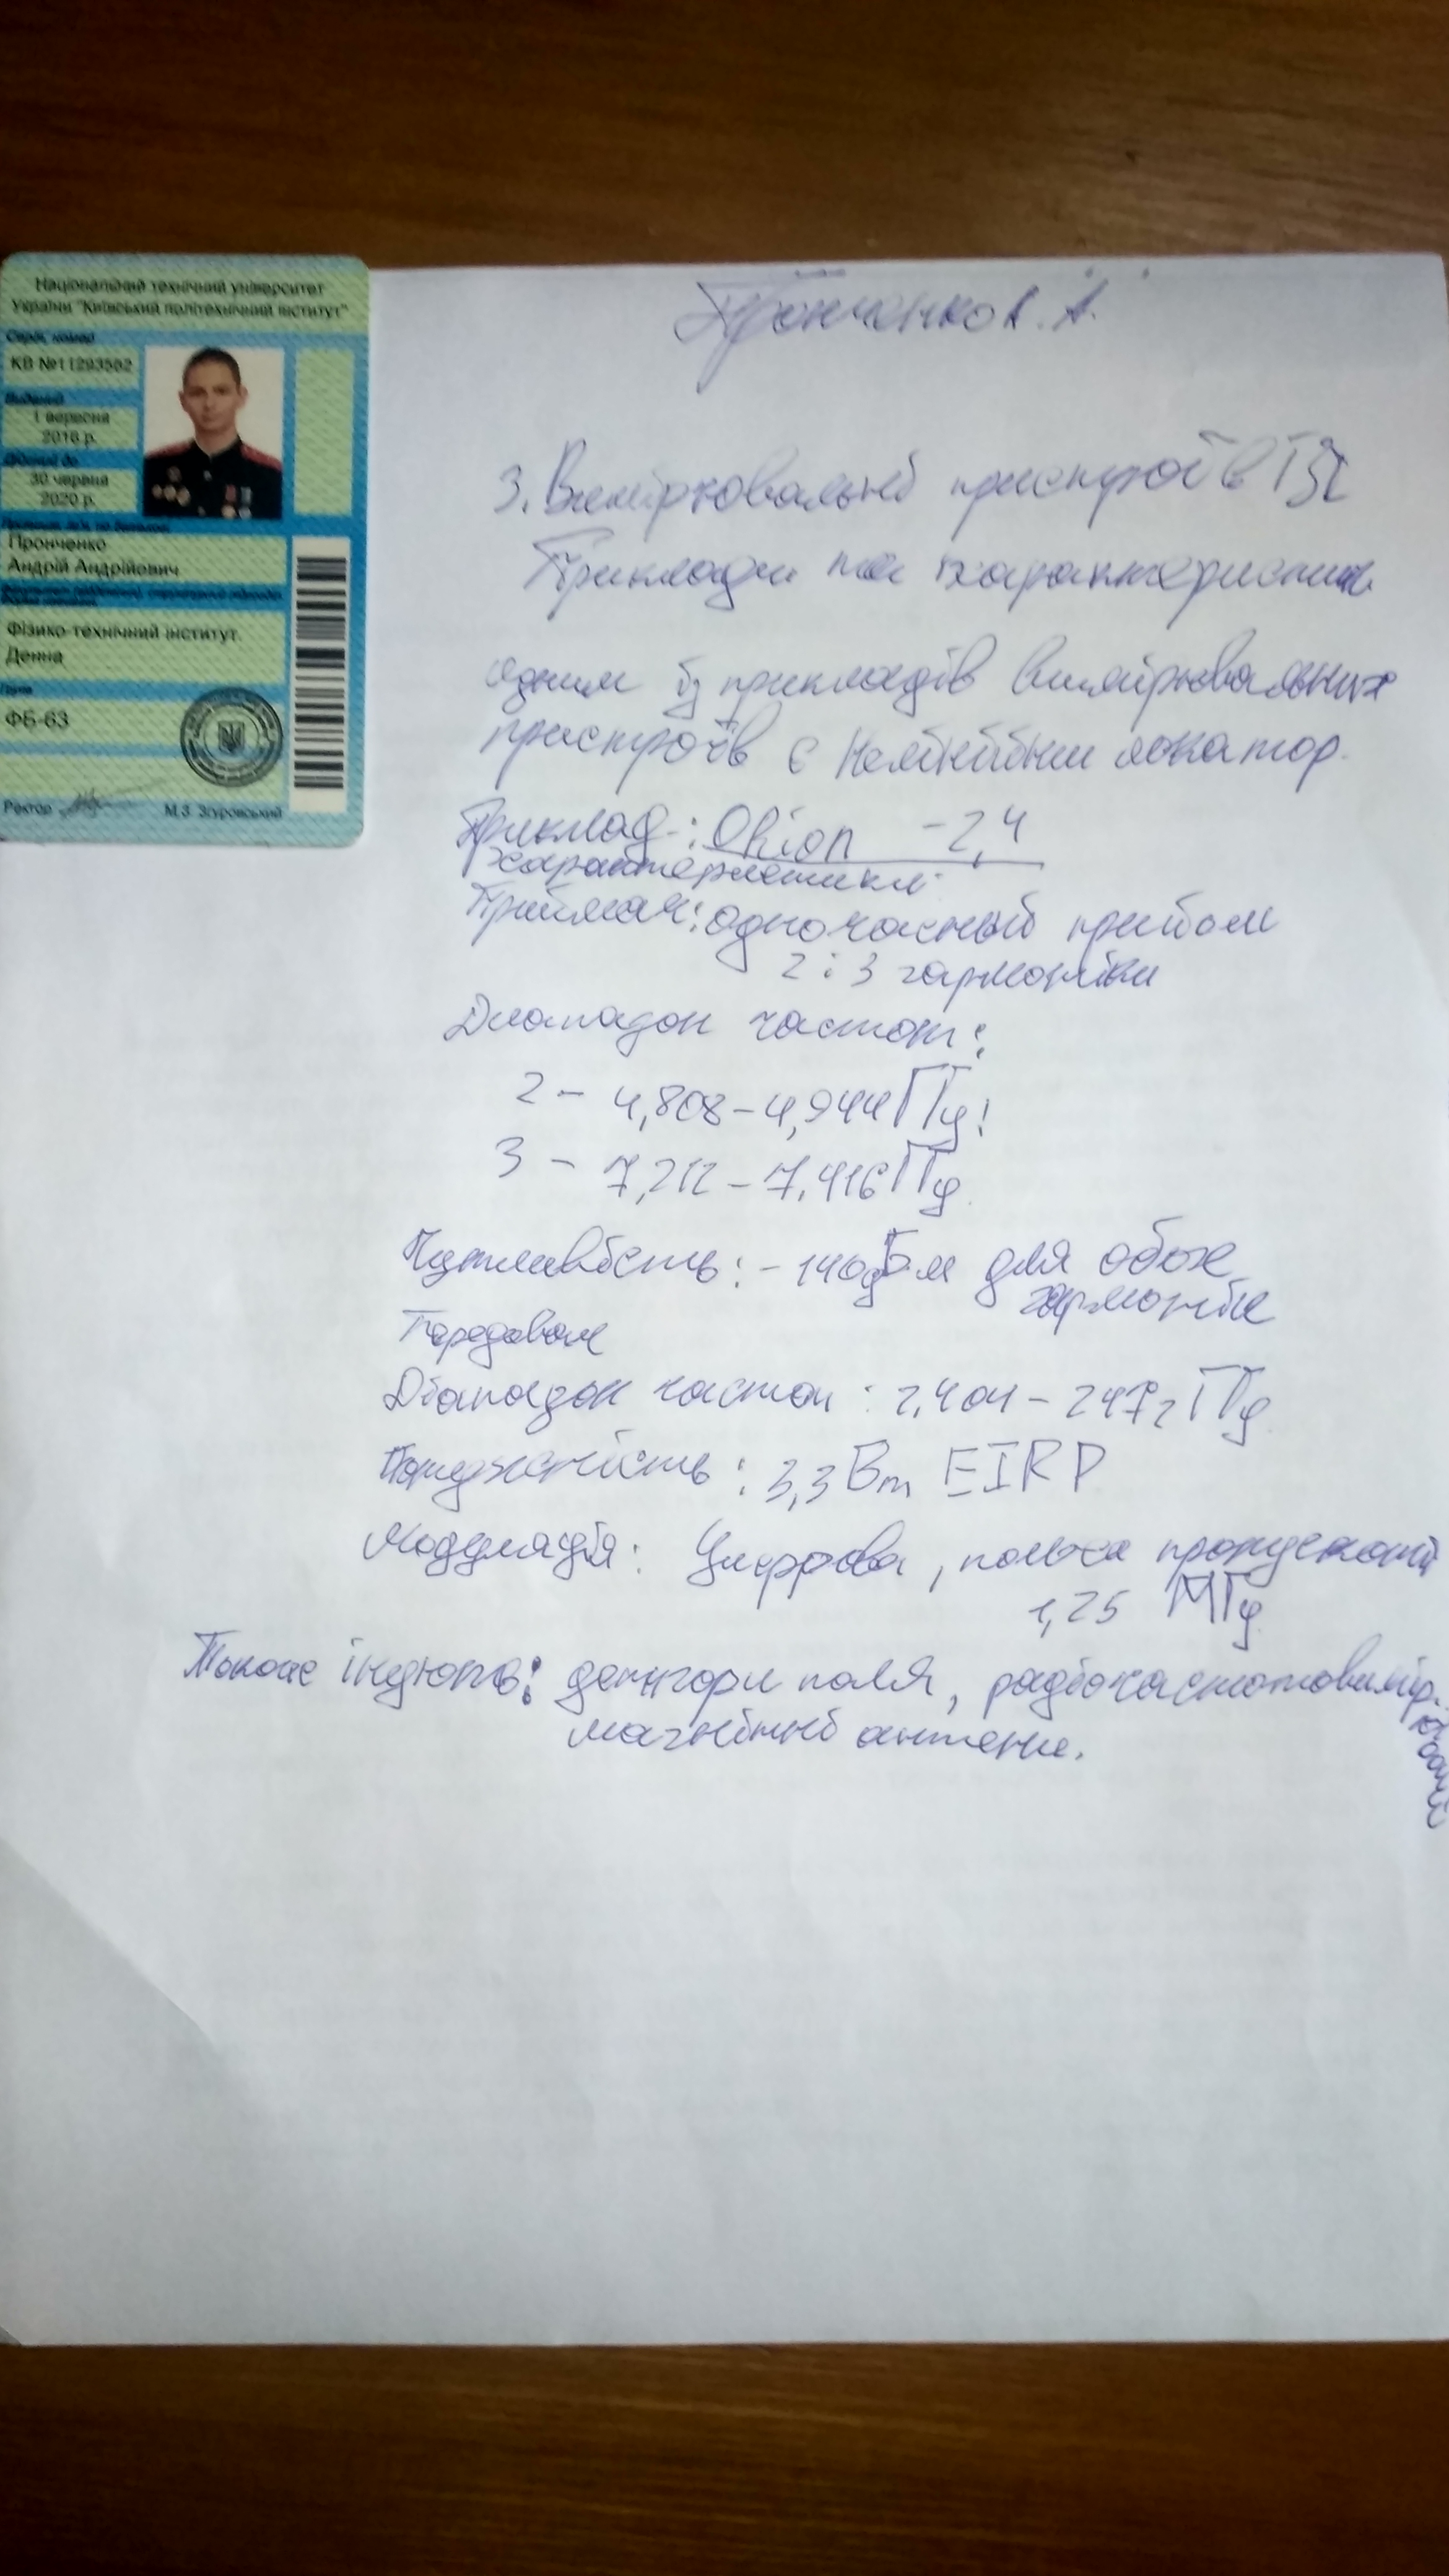 Національний технічний університет
України "Київський політехнічний інститут"
Серія, номер
КВ №11293562
Виданий
1 вересня
2016 р.
Дійсний до
30 червня
2020 р.
Пронченко
Андрій Андрійович
Фізико-технічний інститут
Денна
Група
ФБ-63
Ректор М.З. Згуровський
Пронченко А. А.
3. Вимірювальні пристрої в ТЗІ
Приклади та характеристики
Одним із прикладів вимірювальних
пристроїв є Нелінійний локатор.
Приклад: Orion - 2,4
характеристики:
Приймач: одночасный прийом
2 і 3 гармоніки
Диапазон частот:
2 - 4,808-4,944 ГГц;
3 - 7,212-7,416 ГГц
Чутливість: -140дБм для обох
гармонік
Передавач
Діапазон частот: 2,404-2472 ГГц
Потужність: 3,3 Вт EIRP
Модуляція: Цифрова, полоса
1,25 МГц
Також поля,
магнітні антени.